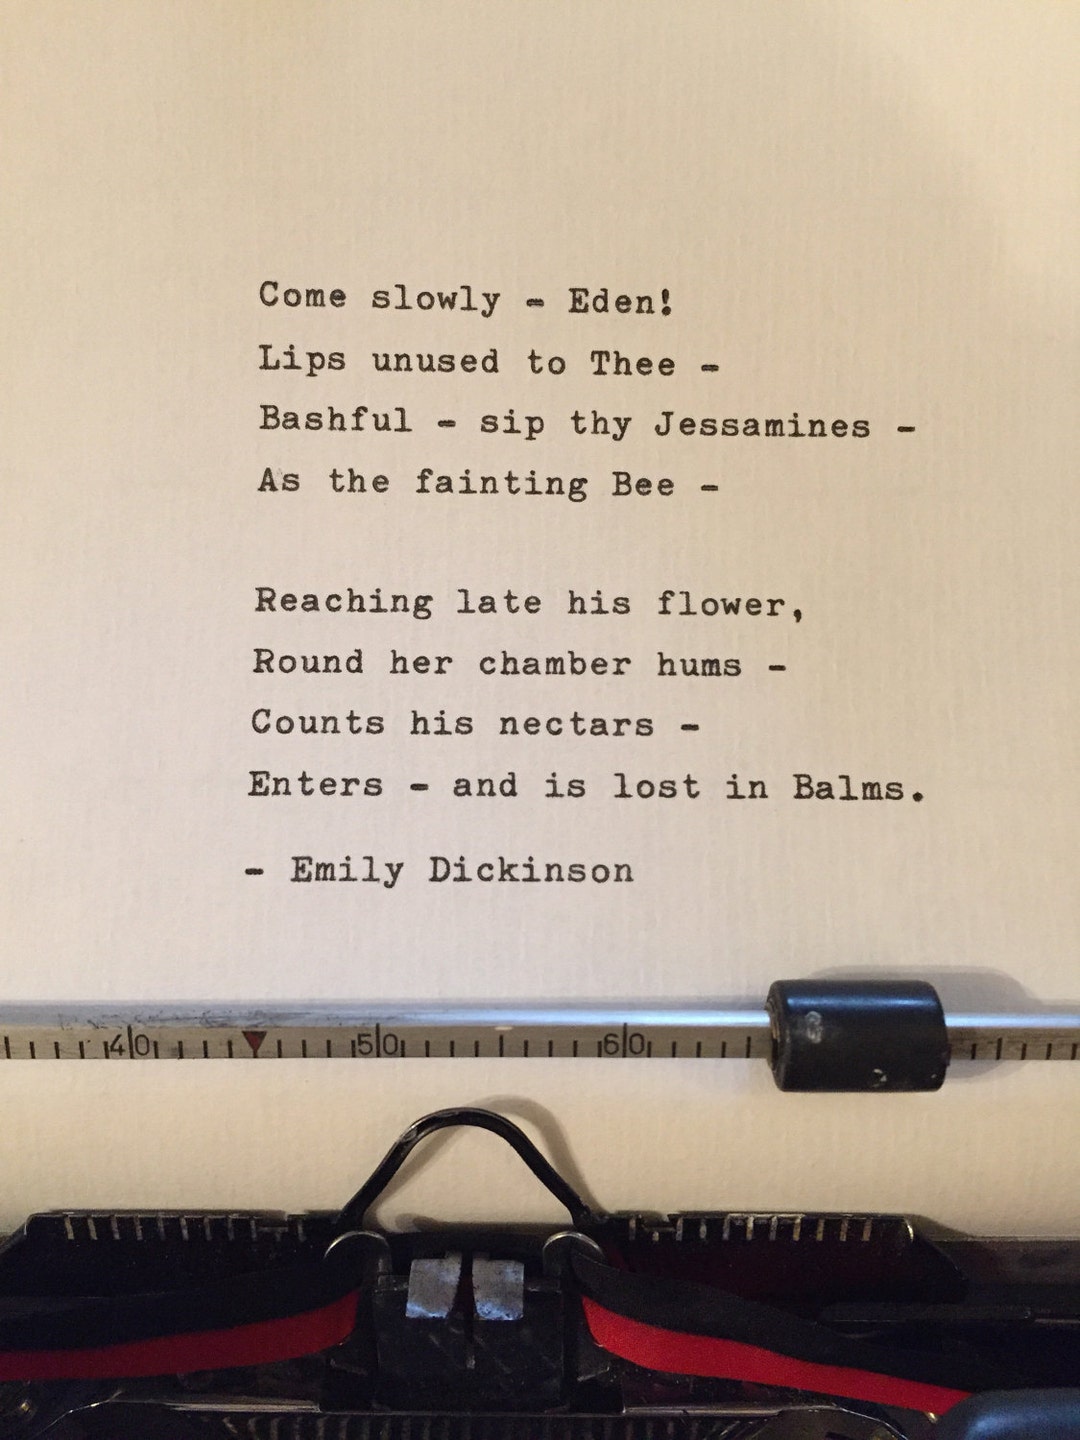 Come slowly - Eden!
Lips unused to Thee -
Bashful - sip thy Jessamines -
As the fainting Bee -
Reaching late his flower,
Round her chamber hums -
Counts his nectars -
Enters - and is lost in Balms.
- Emily Dickinson
40 50 60